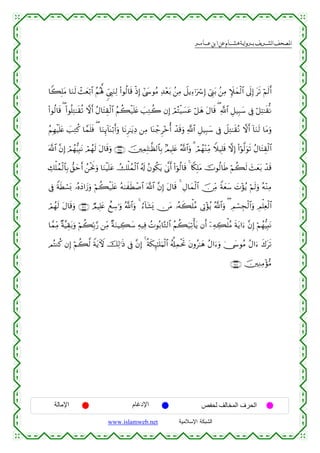 المصحف الشريف برواية هشام عن ابن عامر
أَلَمْ تَرَ إِلَى ٱلْمَلَإِ مِنۢ بَنِىٓ إِسْرَٰٓءِيلَ مِنۢ بَعْدِ مُوسَىٰٓ إِذْ قَالُوا۟ لِنَبِىٍّ لَّهُمُ ٱبْعَثْ لَنَا مَلِكًا
نُّقَٰتِلْ فِى سَبِيلِ ٱللَّهِ ۖ قَالَ هَلْ عَسَيْتُمْ إِن كُتِبَ عَلَيْكُمُ ٱلْقِتَالُ أَلَّا تُقَٰتِلُوا۟ ۖ قَالُوا۟
وَمَا لَنَآ أَلَّا نُقَٰتِلَ فِى سَبِيلِ ٱللَّهِ وَقَدْ أُخْرِجْنَا مِن دِيَٰرِنَا وَأَبْنَآئِنَا ۖ فَلَمَّا كُتِبَ عَلَيْهِمُ
ٱلْقِتَالُ تَوَلَّوْا۟ إِلَّا قَلِيلًا مِّنْهُمْ ۗ وَٱللَّهُ عَلِيمٌۢ بِٱلظَّٰلِمِينَ وَقَالَ لَهُمْ نَبِيُّهُمْ إِنَّ ٱللَّهَ
قَدْ بَعَثَ لَكُمْ طَالُوتَ مَلِكًا ۚ قَالُوٓا۟ أَنَّىٰ يَكُونُ لَهُ ٱلْمُلْكُ عَلَيْنَا وَنَحْنُ أَحَقُّ بِٱلْمُلْكِ
مِنْهُ وَلَمْ يُؤْتَ سَعَةً مِّنَ ٱلْمَالِ ۚ قَالَ إِنَّ ٱللَّهَ ٱصْطَفَىٰهُ عَلَيْكُمْ وَزَادَهُۥ بَسْطَةً فِى
ٱلْعِلْمِ وَٱلْجِسْمِ ۖ وَٱللَّهُ يُؤْتِى مُلْكَهُۥ مَن يَشَآءُ ۚ وَٱللَّهُ وَٰسِعٌ عَلِيمٌ وَقَالَ لَهُمْ
نَبِيُّهُمْ إِنَّ ءَايَةَ مُلْكِهِۦٓ أَن يَأْتِيَكُمُ ٱلتَّابُوتُ فِيهِ سَكِينَةٌ مِّن رَّبِّكُمْ وَبَقِيَّةٌ مِّمَّا
تَرَكَ ءَالُ مُوسَىٰ وَءَالُ هَٰرُونَ تَحْمِلُهُ ٱلْمَلَٰٓئِكَةُ ۚ إِنَّ فِى ذَٰلِكَ لَءَايَةً لَّكُمْ إِن كُنتُم
مُّؤْمِنِينَ
الحرف المخالف لحفص الإدغام الإمالة
الشبكة الإسلامية www.islamweb.net